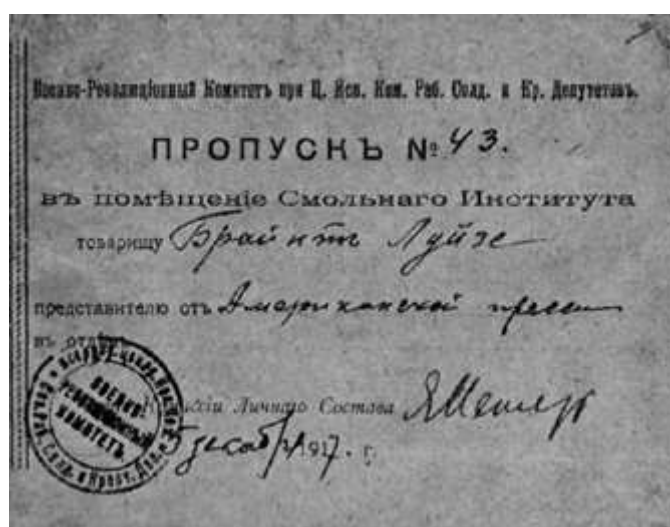 Военно-Революціонный Комитетъ при Ц. Исп. Ком. Раб. Солд. и Кр. Депутатовъ.
ПРОПУСКЪ № 43.
въ помѣщеніе Смольнаго Института
товарищу Брайнтъ Луйзе
представителю отъ Американской прессы
въ отдѣлъ
Личнаго Состава
5 декабря 1917. г.
ВОЕННО-
РЕВОЛЮЦІОННЫЙ
КОМИТЕТЪ